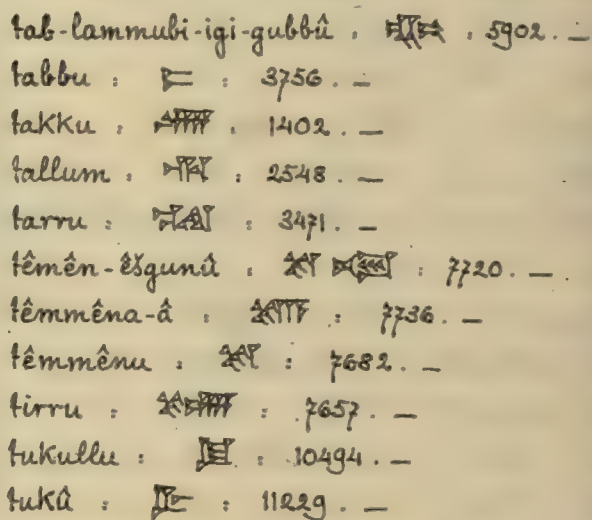 tab-lammubi-igi-gubbû : : 5902. —
tabbu : 𒋰 : 3756. —
takku : 𒋳 : 1402. —
tallum : 𒊑 : 2548. —
tarru : : 3471. —
têmên-êšgunû : : 7720. —
têmmêna-â : 𒋼𒀀 : 7736. —
têmmênu : 𒋼 : 7682. —
tirru : 𒌁 : 7657. —
tukullu : 𒆪 : 10494. —
tukû : 𒌇 : 11229. —